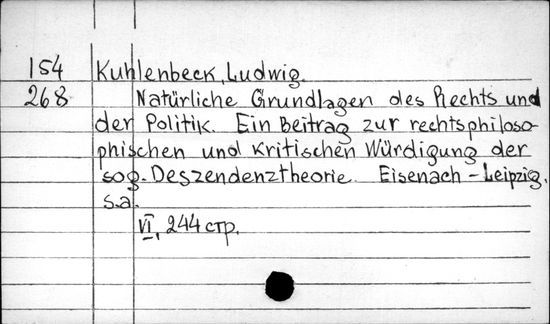 154 Kuhlenbeck, Ludwig.
268 Natürliche Grundlagen des Rechts und
der Politik. Ein Beitrag zur rechtsphiloso-
phischen und kritischen Würdigung der
sog. Deszendenztheorie. Eisenach - Leipzig,
s.a.
VI, 244 стр.